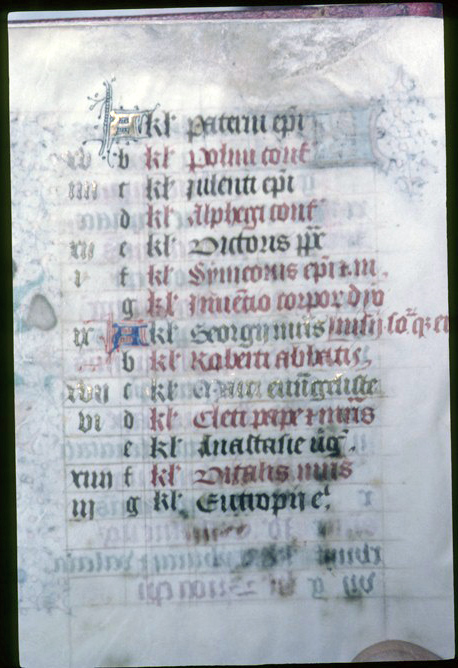 A kl paterni epi
xv b kl polini conf
iiii c kl iulenti epi
d kl Alphegi conf
xii e kl Victoris pp
i f kl Symeonis epi & m.
g kl Inuētio corpor dyo
ix A kl Georgij mris
b kl Roberti abbatis
xvii c kl euāgeliste
vi d kl Cleti pape & mris
e kl Anastasie uig.
xiiii f kl Vitalis mris
iii g kl Eutropij e